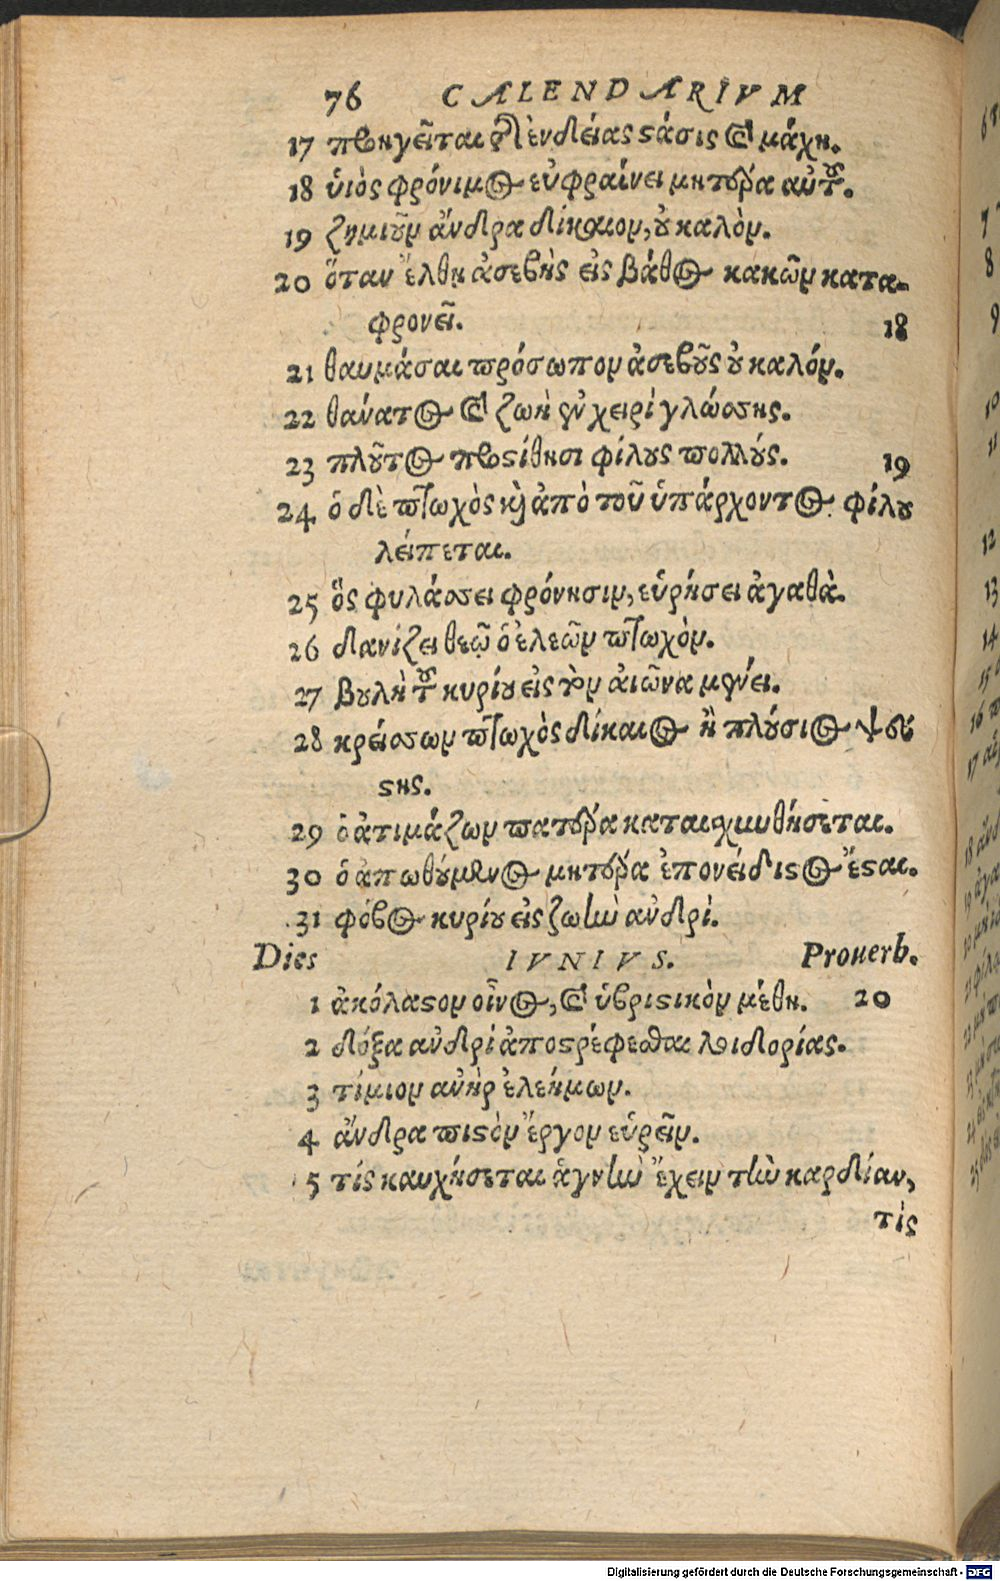 76 CALENDARIVM
17 προηγεῖται τῆς ἐνδείας στάσις καὶ μάχη.
18 ὑιὸς φρόνιμος εὐφραίνει μητέρα αὐτοῦ.
19 ζημιοῦν ἄνδρα δίκαιον, οὐ καλὸν.
20 ὅταν ἔλθῃ ἀσεβὴς εἰς βάθος κακῶν κατα-
φρονεῖ. 18
21 θαυμάσαι πρόσωπον ἀσεβοῦς οὐ καλόν.
22 θάνατος καὶ ζωὴ ἐν χειρὶ γλώσσης.
23 πλοῦτος προστίθησι φίλους πολλούς. 19
24 ὁ δὲ πτωχὸς καὶ ἀπὸ τοῦ ὑπάρχοντος φίλου
λείπεται.
25 ὃς φυλάσσει φρόνησιν, εὑρήσει ἀγαθὰ.
26 δανίζει θεῷ ὁ ἐλεῶν πτωχὸν.
27 βουλὴ τοῦ κυρίου εἰς τὸν αἰῶνα μένει.
28 κρείσσων πτωχὸς δίκαιος ἢ πλούσιος ψευ
στης.
29 ὁ ἀτιμάζων πατέρα καταισχυνθήσεται.
30 ὁ ἀπωθούμενος μητέρα ἐπονείδιστος ἔσται.
31 φόβος κυρίου εἰς ζωὴν ἀνδρὶ.
Dies IVNIVS. Prouerb.
1 ἀκόλαστον οἶνος, καὶ ὑβριστικὸν μέθη. 20
2 δόξα ἀνδρὶ ἀποστρέφεσθαι λοιδορίας.
3 τίμιον ἀνὴρ ἐλεήμων.
4 ἄνδρα πιστὸν ἔργον εὑρεῖν.
5 τίς καυχήσεται ἁγνὴν ἔχειν τὴν καρδίαν,
τὶς
Digitalisierung gefördert durch die Deutsche Forschungsgemeinschaft - DFG